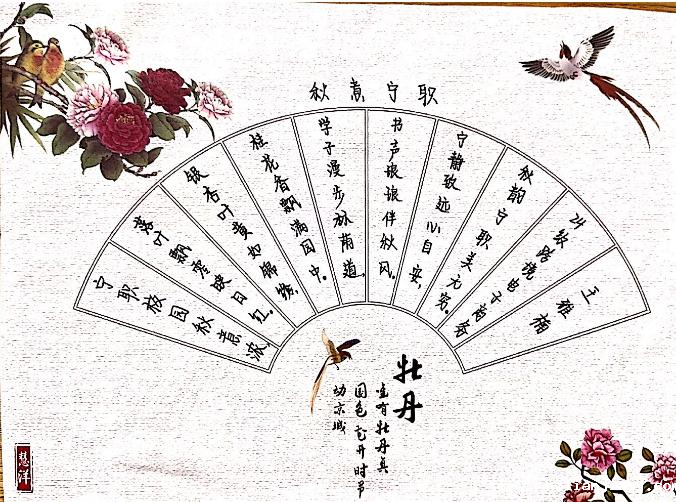 秋意宁职
宁职校园秋意浓,
落叶飘零映日红。
银杏叶黄如锦绣,
桂花香飘满园中。
学子漫步林荫道,
书声琅琅伴秋风。
宁静致远心自安,
秋韵宁职美无穷。
24级跨境电子商务
王雅楠
牡丹
唯有牡丹真
国色花开时节
动京城
慧洋